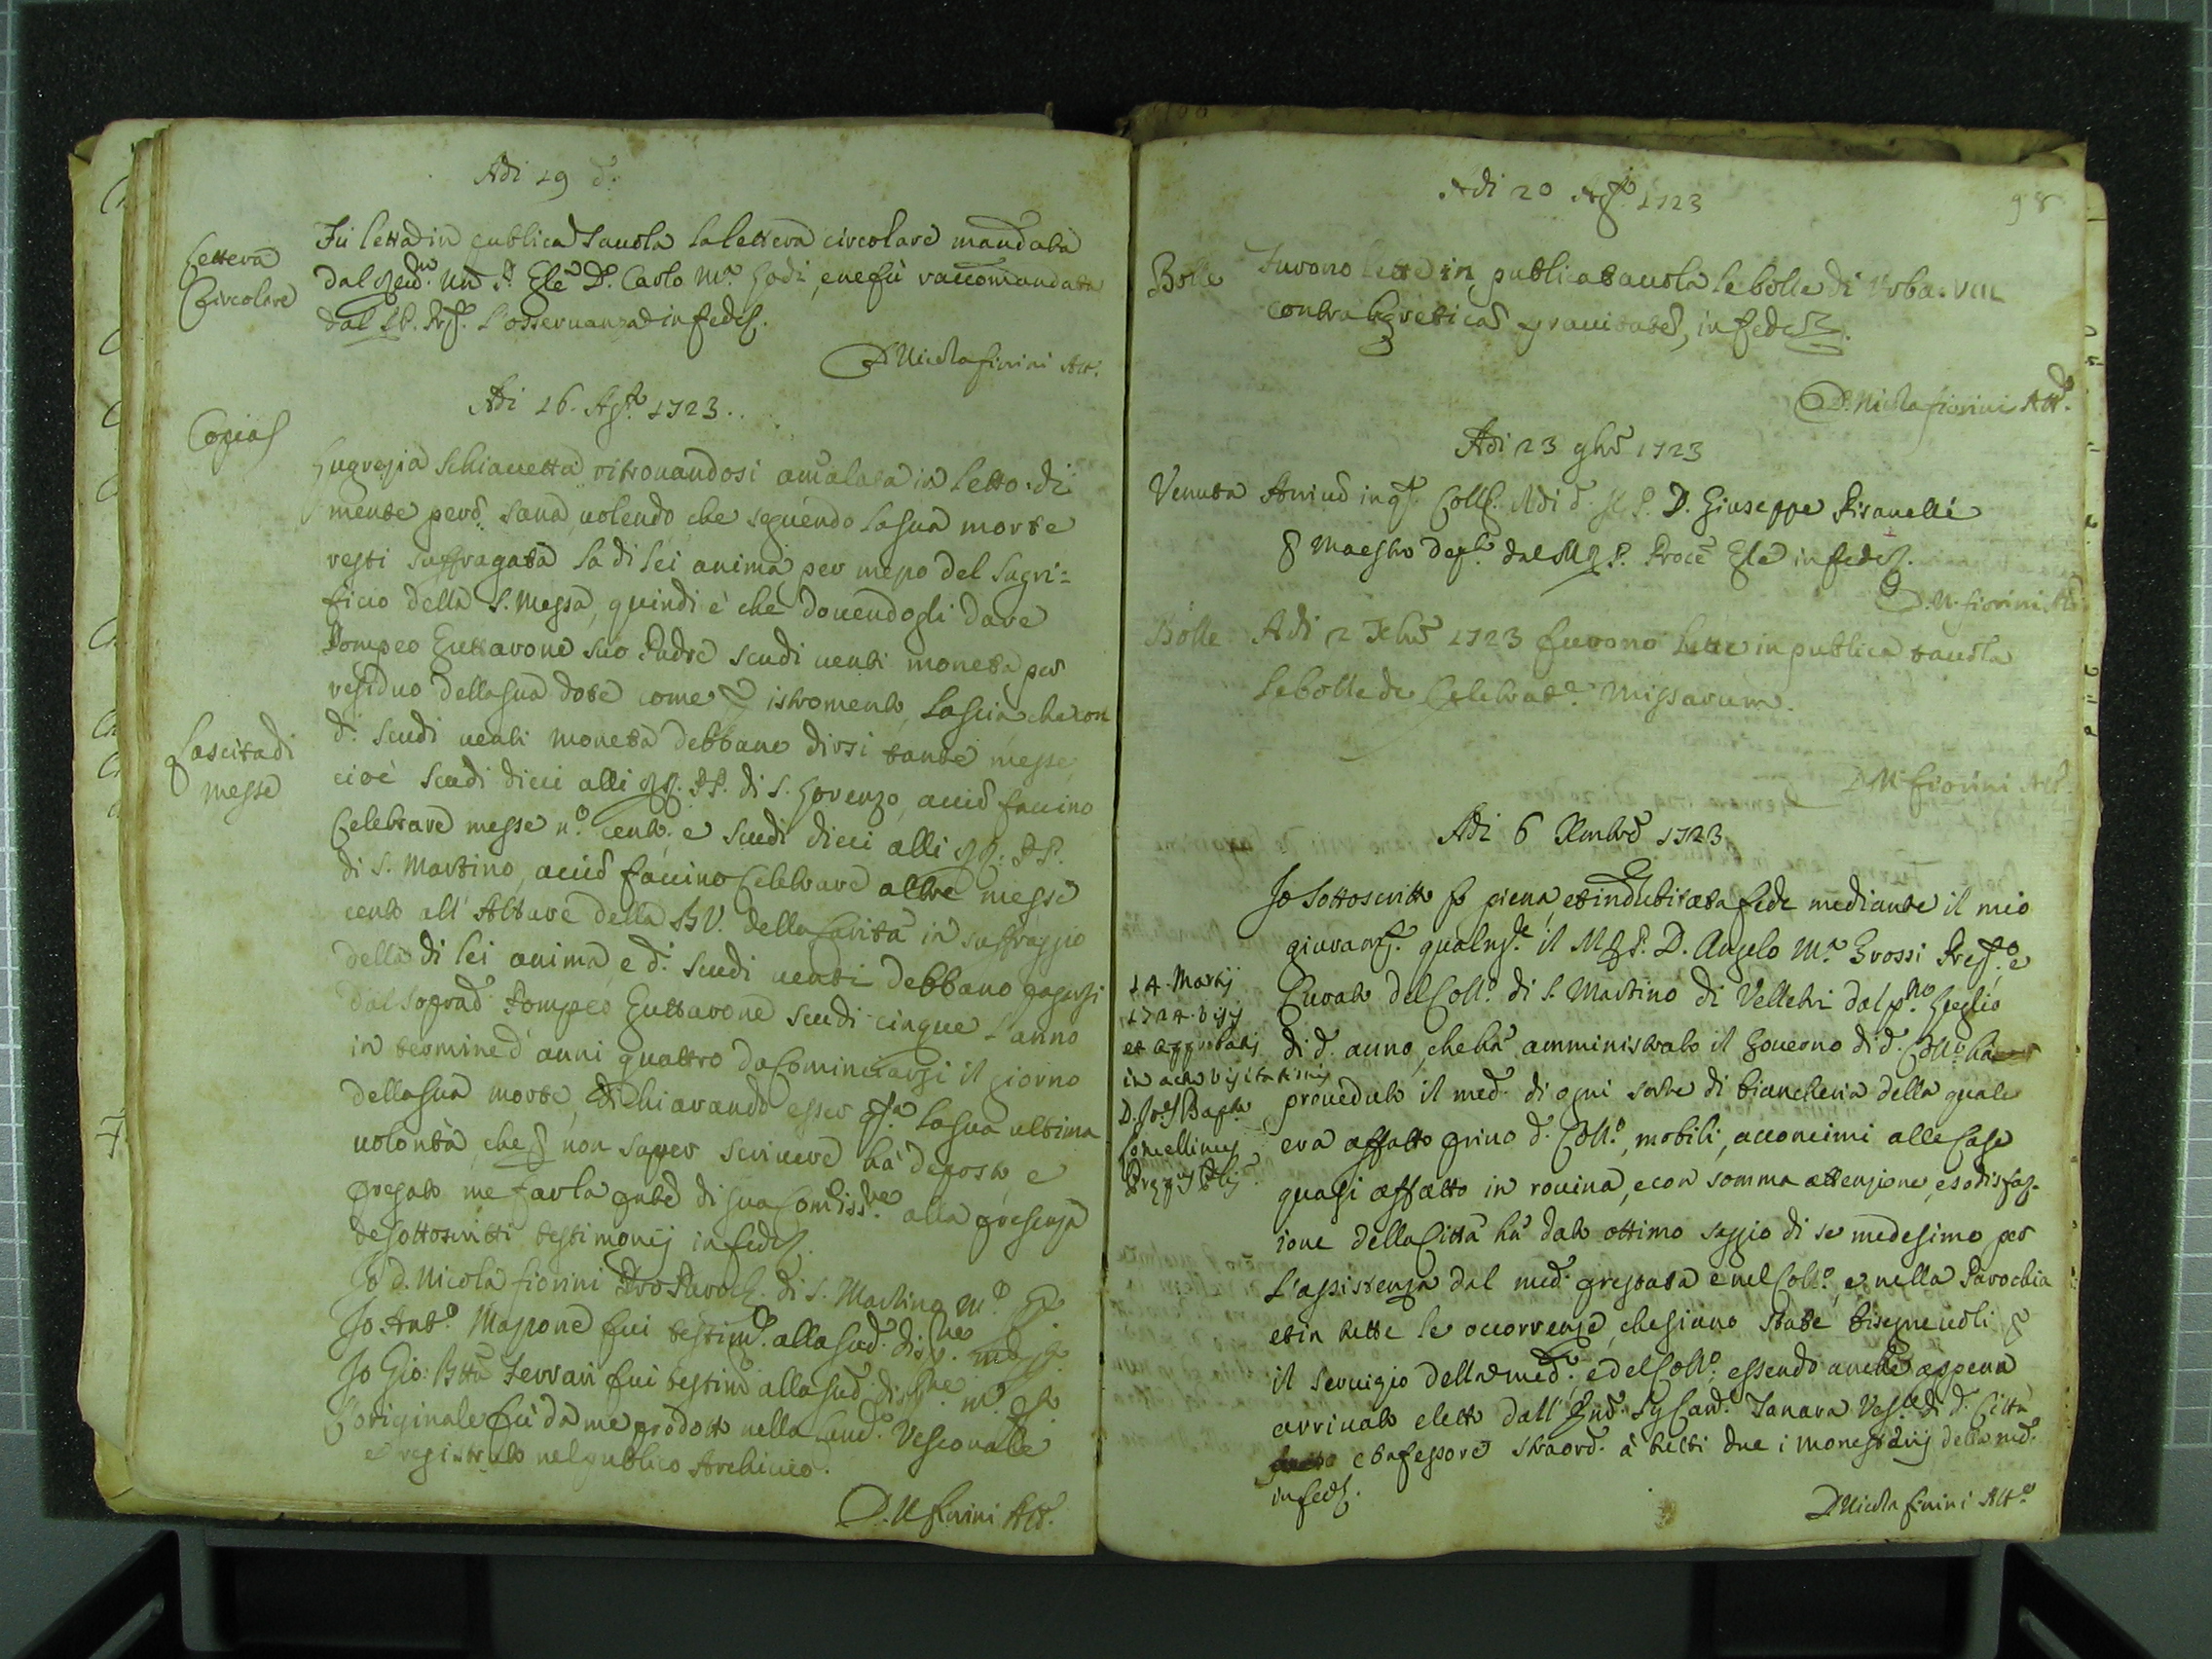 Adi 19 d.
Lettera
Circolare
Fù letta in publica Tauola la lettera circolare mandata
dal Rend.mo Nrõ P. Glẽ D. Carlo M.a Lodi, e ne fù raccomandata
dal P. L'osseruanza in fede
D Nicola Fiorini Att.
Adi 16. Ag.to 1723.
Copia
Lugrezia Schiauetta ritrouandosi amalata in letto di
mente però sana uolendo che seguendo la sua morte
resti suffragata la di lei anima per mezo del Sagri=
ficio della S. Messa, quindi è che douendogli dare
Pompeo Guttarone suo Padre scudi uenti moneta per
residuo della sua dote come istromento, Lascia che con
d. scudi uenti moneta debbano dirsi tante messe,
Lascita di
messe
cioè scudi dieci alli RR. PP. di S. Lorenzo, acciò faccino
Celebrare messe n.o cento, e scudi dieci alli RR. PP.
di S. Martino, acciò faccino Celebrare altre messe
cento all' Altare della BV. della Carità in suffraggio
della di lei anima, e d. scudi uenti debbano pagarsi
dal soprad. Pompeo Guttarone scudi cinque l'anno
in termine d'anni quattro da Cominciarsi il giorno
della sua morte, dichiarando esser q.sta la sua ultima
uolontà, che non saper scriuere hà deposto, e
pregato me farla di sua Comiss.ne alla presenza
de sottoscritti testimonij in fede
Io D. Nicola Fiorini Paroch. di S. Martino m.o pp.
Io Ant.o Mazzone fui testim.o alla sud. disp.ne
Io Gio: Btta Ferrari fui testimõ alla sud. disp.ne m.o pp.
L'originale fù da me prodotto nella Canc. Vescouale
e registrato nel publico Archiuio.
D. N Fiorini Att.
98
Adi 20 Ag.to 1723
Bolle
Furono lette in publica tauola le bolle di Vrba. VIII
contra hereticã prauitatẽ, in fede
D. Nicola Fiorini Att.
Adi 23 9brẽ 1723
Venuta
Arriuò in q.sto Coll. Adi d. Il P. D. Giuseppe Piranelli
Maestro dal M R P. Proc. Glẽ in fede
D. N. Fiorini Att.
Bolle
Adi 2 Xbrẽ 1723 furono lette in publica tauola
le bolle de Celebrat.e Missarum.
D N Fiorini Att.
Adi 6 Xmbrẽ 1723
Io Sottoscritto fo piena, et indubitata fede mediante il mio
giuram.to qualm.te il M R P. D. Angelo M.a Grossi Prep.to e
Curato del Coll.o di S. Martino di Velletri dal p.mo Luglio
di d. anno, che hà amministrato il Gouerno di d. Coll.o hà
proueduto il med. di ogni sorte di biancheria della quale
era affatto priuo d. Coll.o, mobili, acconcimi alle Case
quasi affatto in rouina, e con somma attenzione, e sodisfaz-
ione della Città hà dato ottimo saggio di se medesimo per
L'assistenza dal med. prestata e nel Coll.o, e nella Parochia
et in tutte le occorrenze, che siano state bisogneuoli
il seruigio della med., e del Coll.o essendo anche appena
arriuato eletto dall' Sig. Card. Tanara Vesc. di d. Città
Cõfessore straord. à tutti due i monesterij della med.
in fede
D Nicola Fiorini Att.o
14. Martij
1724. visi
et approbatus
in actu visitationis
D. Jo. Bapta